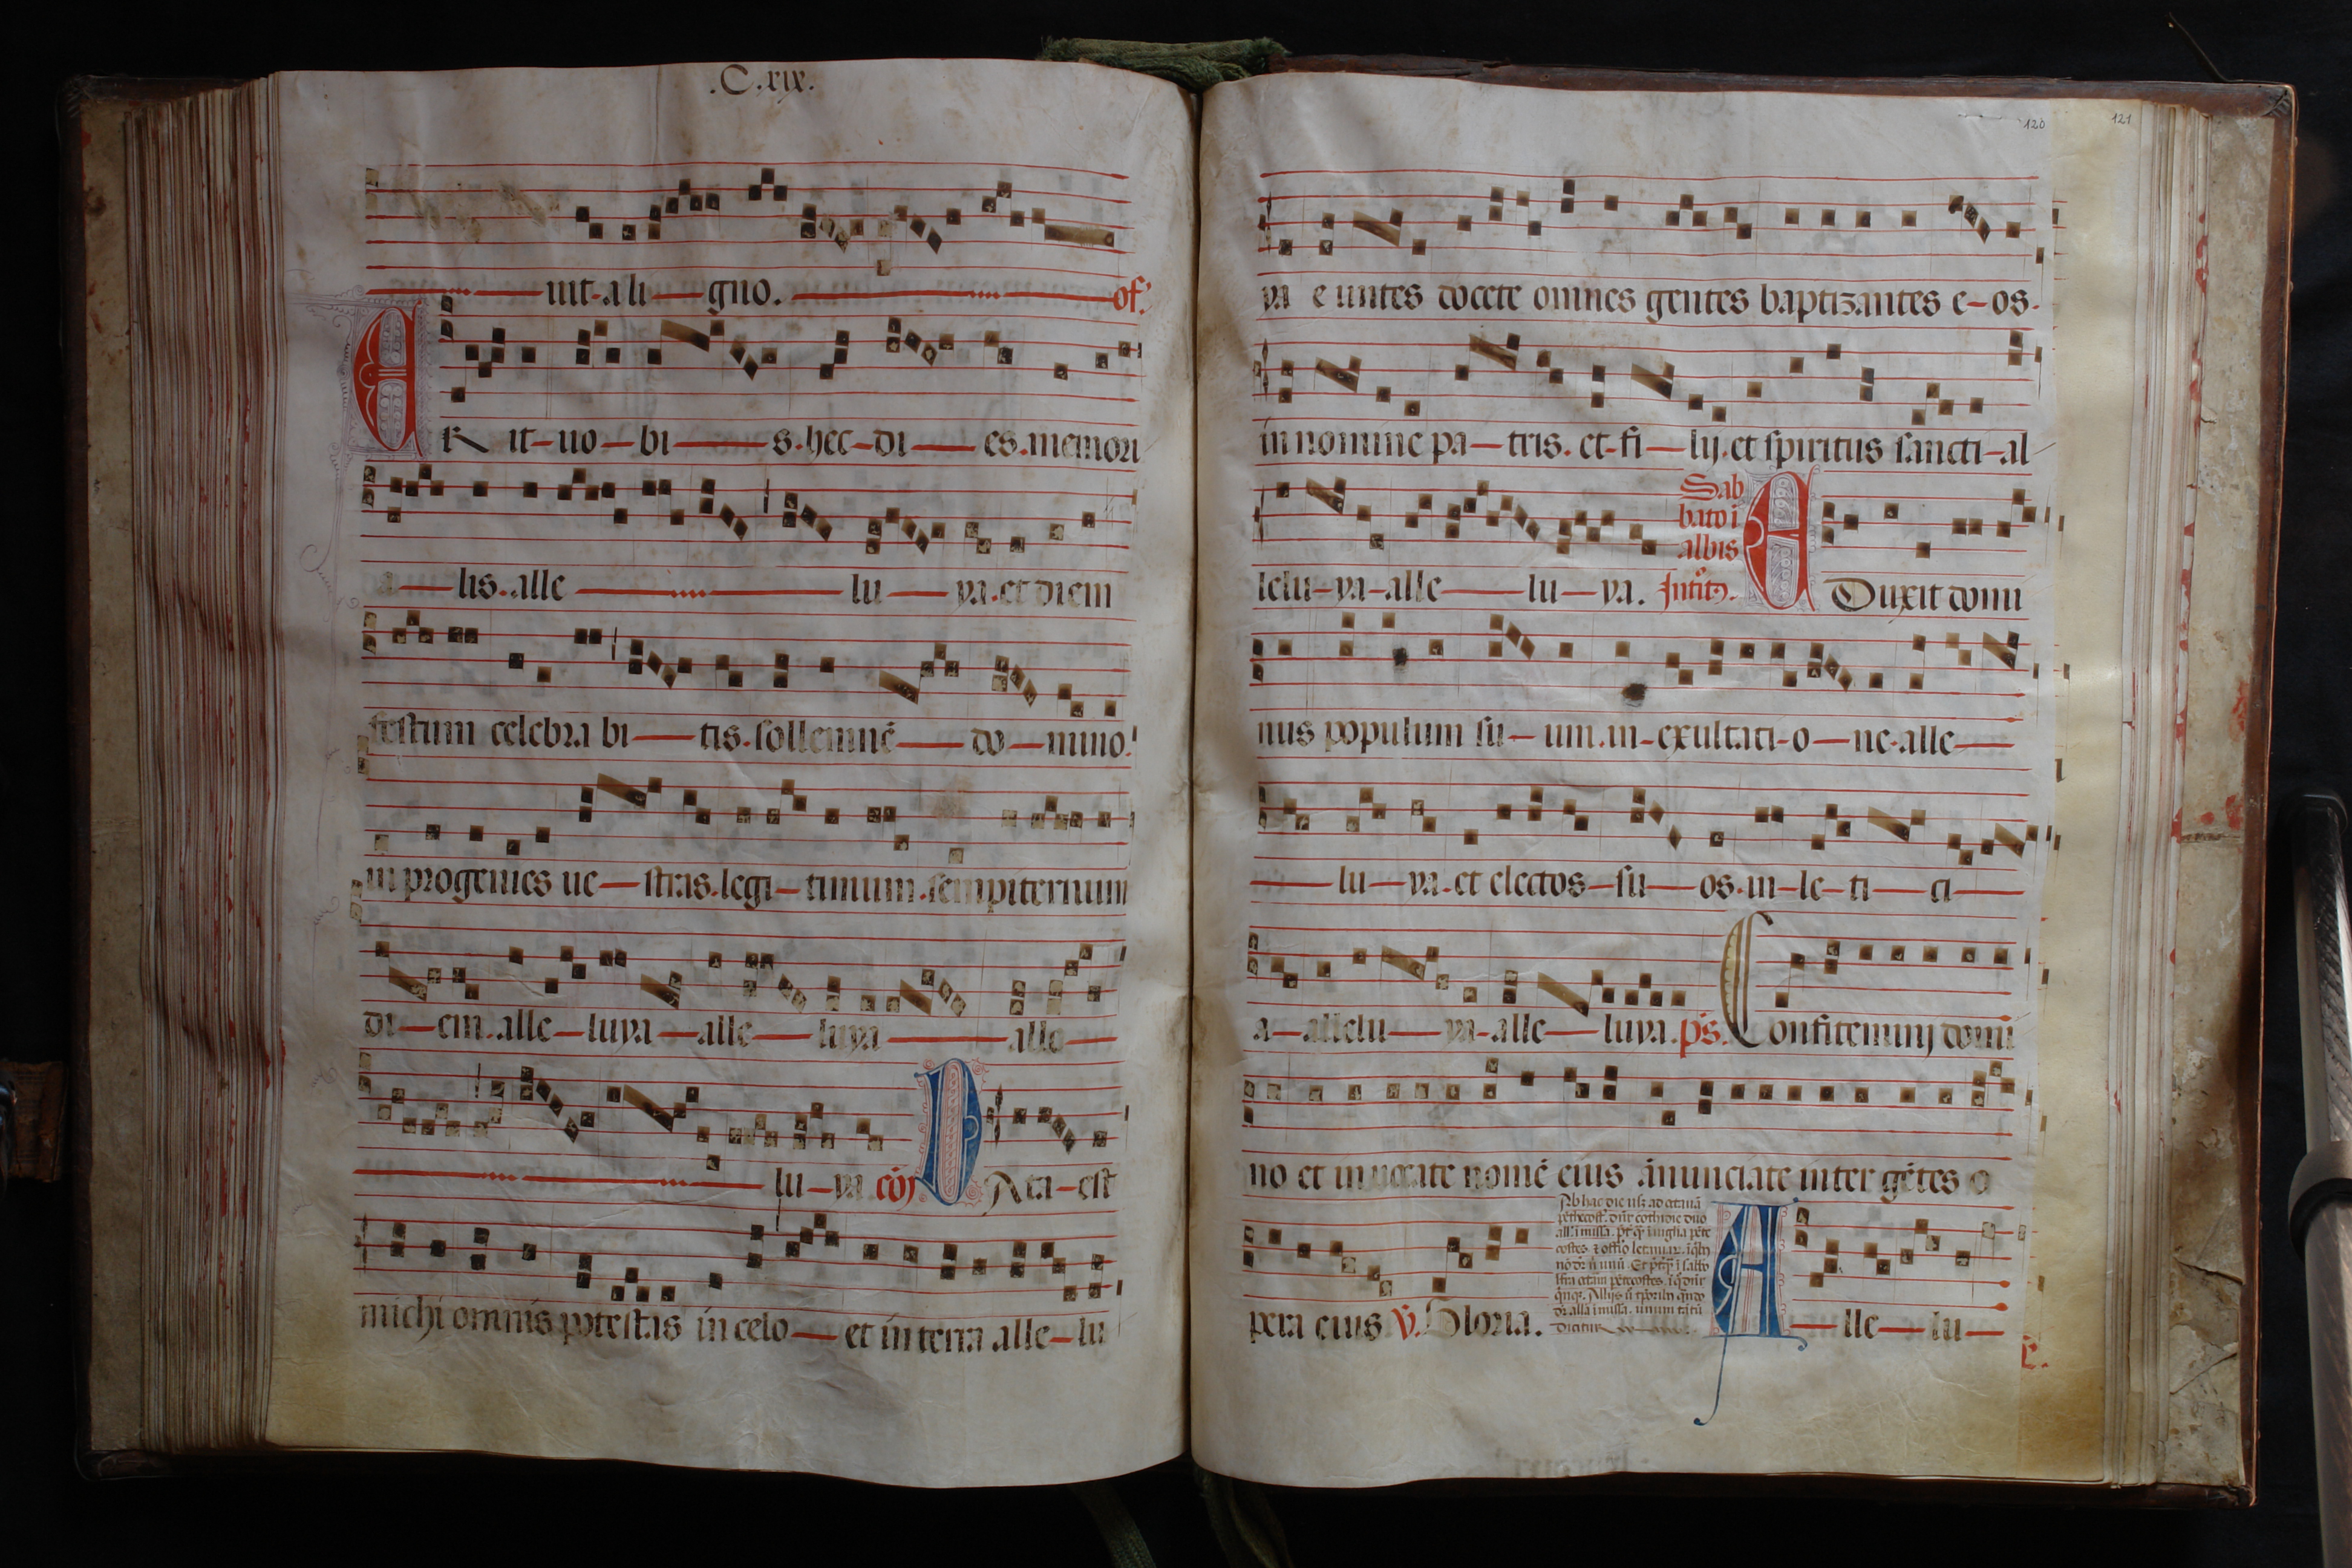 .C.xix.
uit a li gno. of.
E R it uo bi s. hec di es. memori
a lis. alle lu ya. et diem
festum celebra bi tis. sollemnē do mino.
in progenies ue stras. legi timum. sempiternum
di em. alle luya alle luya alle
lu ya. cō D Ata est
michi omnis potestas in celo et in terra alle lu
120
121
ya e untes docete omnes gentes baptizantes e os.
in nomine pa tris. et fi lij. et spiritus sancti al
lelu ya alle lu ya.
Sab
bato ī
albis
E Duxit domi
nus populum su um. in exultati o ne. alle
lu ya. et electos su os. in le ti ci
a allelu ya alle luya. ps. Confitemini domi
no et inuocate nomē eius ānunciate inter gētes o
pera eius V. Gloria.
Ab hac die
A lle lu